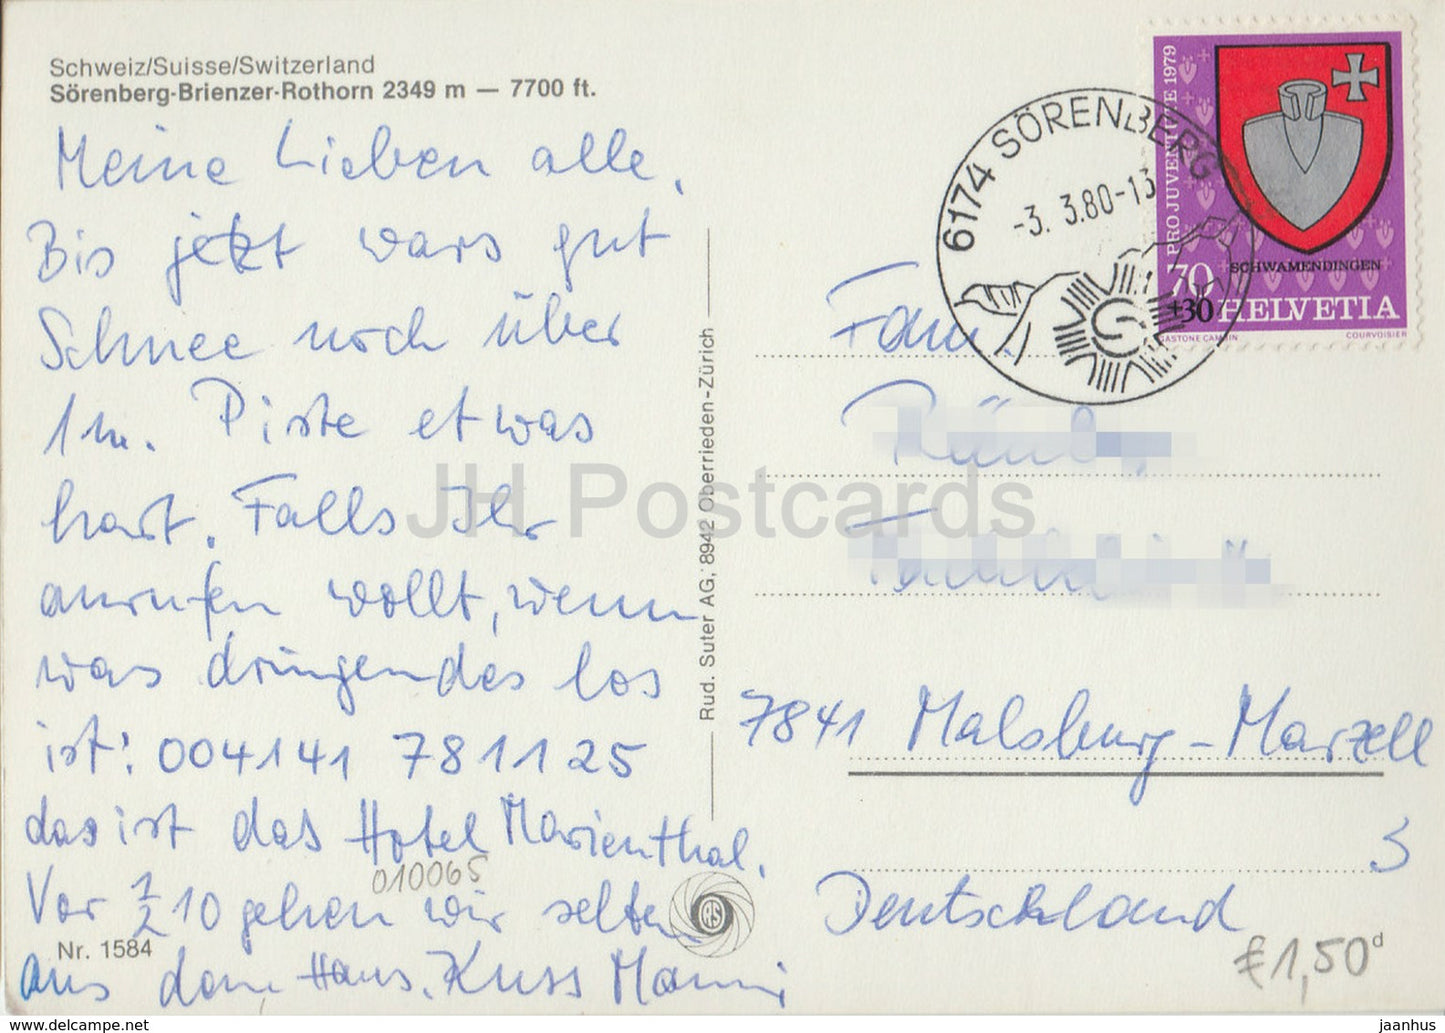 Schweiz/Suisse/Switzerland
Sörenberg-Brienzer-Rothorn 2349 m — 7700 ft.
Meine Lieben alle,
Bis jetzt wars gut
Schnee noch über
1 m. Piste etwas
hart. Falls Ihr
anrufen wollt, wenn
was dringendes los
ist: 004141 781125
das ist das Hotel Marienthal.
010065
Vor 1/2 10 gehen wir selten
Nr. 1584
aus dem Haus. Kuss Mami
Rud. Suter AG, 8942 Oberrieden-Zürich
RS
6174 SÖRENBERG
-3. 3.80-13
PRO JUVENTUTE 1979
SCHWAMENDINGEN
70
+30 HELVETIA
GASTONE CAMBIN COURVOISIER
Fam.
7841 Malsburg-Marzell
3
Deutschland
€1,50 d
JH Postcards
jaanhus ensitecampe.net